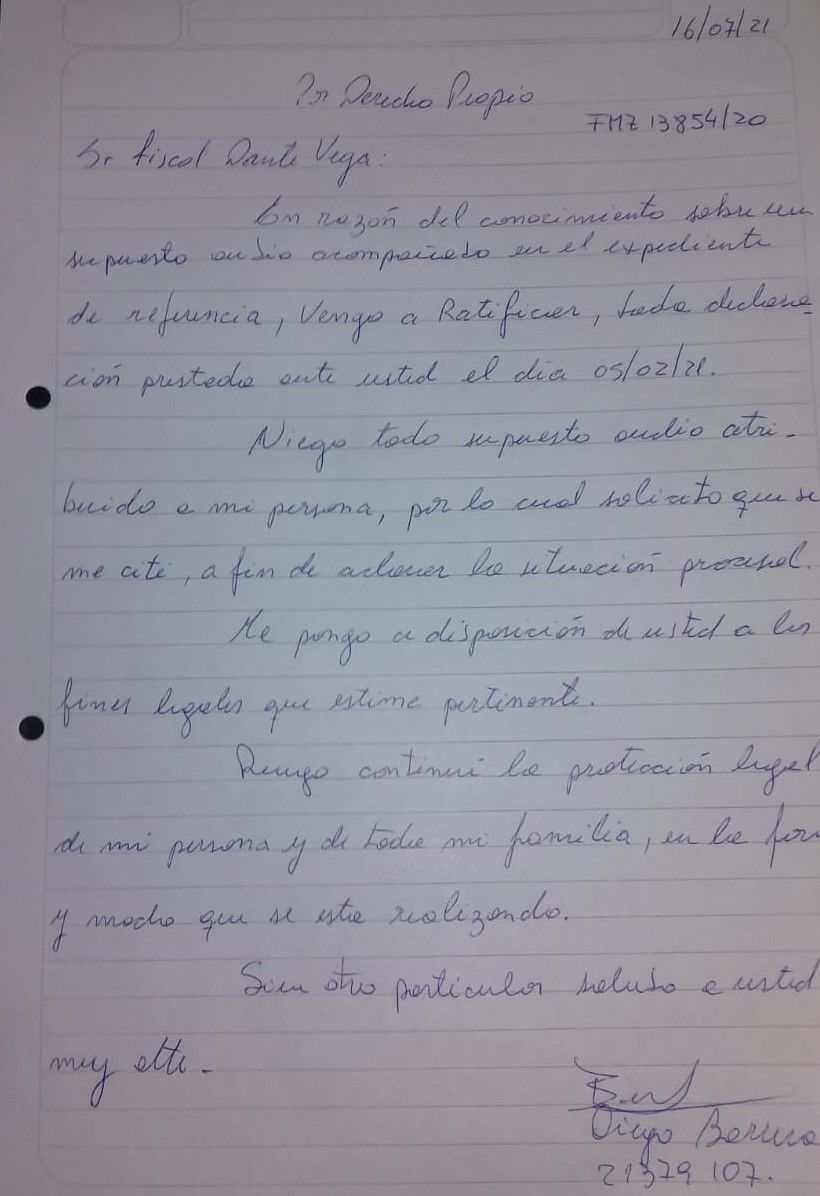 16/07/21
Por Derecho Propio
FMZ 13854/20
Sr fiscal Dante Vega:
En razón del conocimiento sobre un
supuesto audio acompañado en el expediente
de referencia, Vengo a Ratificar, toda declara-
ción prestada ante usted el día 05/02/21.
Niego todo supuesto audio atri-
buido a mi persona, por lo cual solicito que se
me cite, a fin de aclarar la situación procesal.
Me pongo a disposición de usted a los
fines legales que estime pertinente.
Ruego continué la protección legal
de mi persona y de toda mi familia, en la for
y modo que se esta realizando.
Sin otro particular saludo a usted
muy atte.
Diego Barrera
21379 107.